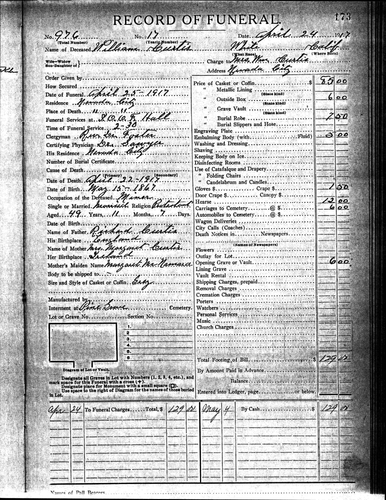 RECORD OF FUNERAL.
173
No. 976 No. 17 Date, April 24 1917
(Total Number) (Yearly Number)
Name of Deceased William Curtis White Calif
Charge to Mrs. Wm. Curtis
Address Nevada City
Order Given by
How Secured
Date of Funeral April 25-1917
Residence Nevada City
Place of Death " "
Funeral Services at I.O.O.F. Hall
Time of Funeral Service 2-30
Clergyman
Certifying Physician Dr. Sawyer
His Residence Nevada City
Number of Burial Certificate
Cause of Death
Date of Death April 22-1917
Date of Birth May 15-1867
Occupation of Deceased Miner
Single or Married Married Religion
Aged 49 Years 11 Months 7 Days
Name of Father Richard Curtis
His Birthplace England
Name of Mother Mrs Margaret Curtis
Her Birthplace Ireland
Mother's Maiden Name Margaret McNamara
Body to be shipped to -
Size and Style of Casket or Coffin
Manufactured by
Interment at Pine Grove Cemetery.
Lot or Grave No. Section No.
Diagram of Lot or Vault.
Designate all Graves in Lot with Numbers (1, 2, 3, 4, etc.), and
mark space for this Funeral with a cross (+).
Designate place for Monument with a small square
Use space to the right of Diagram for the names of those buried
in Lot.
Price of Casket or Coffin $ 85 00
" Metallic Lining
" Outside Box 6 00
" Grave Vault
" Burial Robe 7 50
Burial Slippers and Hose
Engraving Plate
Embalming Body (with Fluid) 5 00
Washing and Dressing
Shaving
Keeping Body on Ice
Disinfecting Rooms
Use of Catafalque and Drapery
" Folding Chairs
" Candelabrum and Candles
Gloves $ Crape $ 1 50
Door Crape $ Canopy $
Hearse 12 00
Carriages to Cemetery @ $ 6 00
Automobiles to Cemetery @ $
Wagon Deliveries
City Calls (Coaches)
Death Notices in Newspapers
(Names of Newspapers)
Flowers
Outlay for Lot
Opening Grave or Vault 6 00
Lining Grave
Vault Rental
Shipping Charges, prepaid
Removal Charges
Cremation Charges
Porters
Watchers
Personal Services
Music
Church Charges
Total Footing of Bill $ 129 00
By Amount Paid in Advance
Balance
Entered into Ledger, page or below.
Apr 24 To Funeral Charges Total, $ 129 00 May 4 By Cash $ 129 00
Names of Pall Bearers